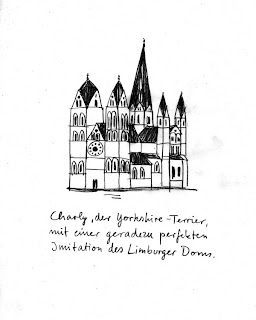 Charly, der Yorkshire-Terrier,
mit einer geradezu perfekten
Imitation des Limburger Doms.